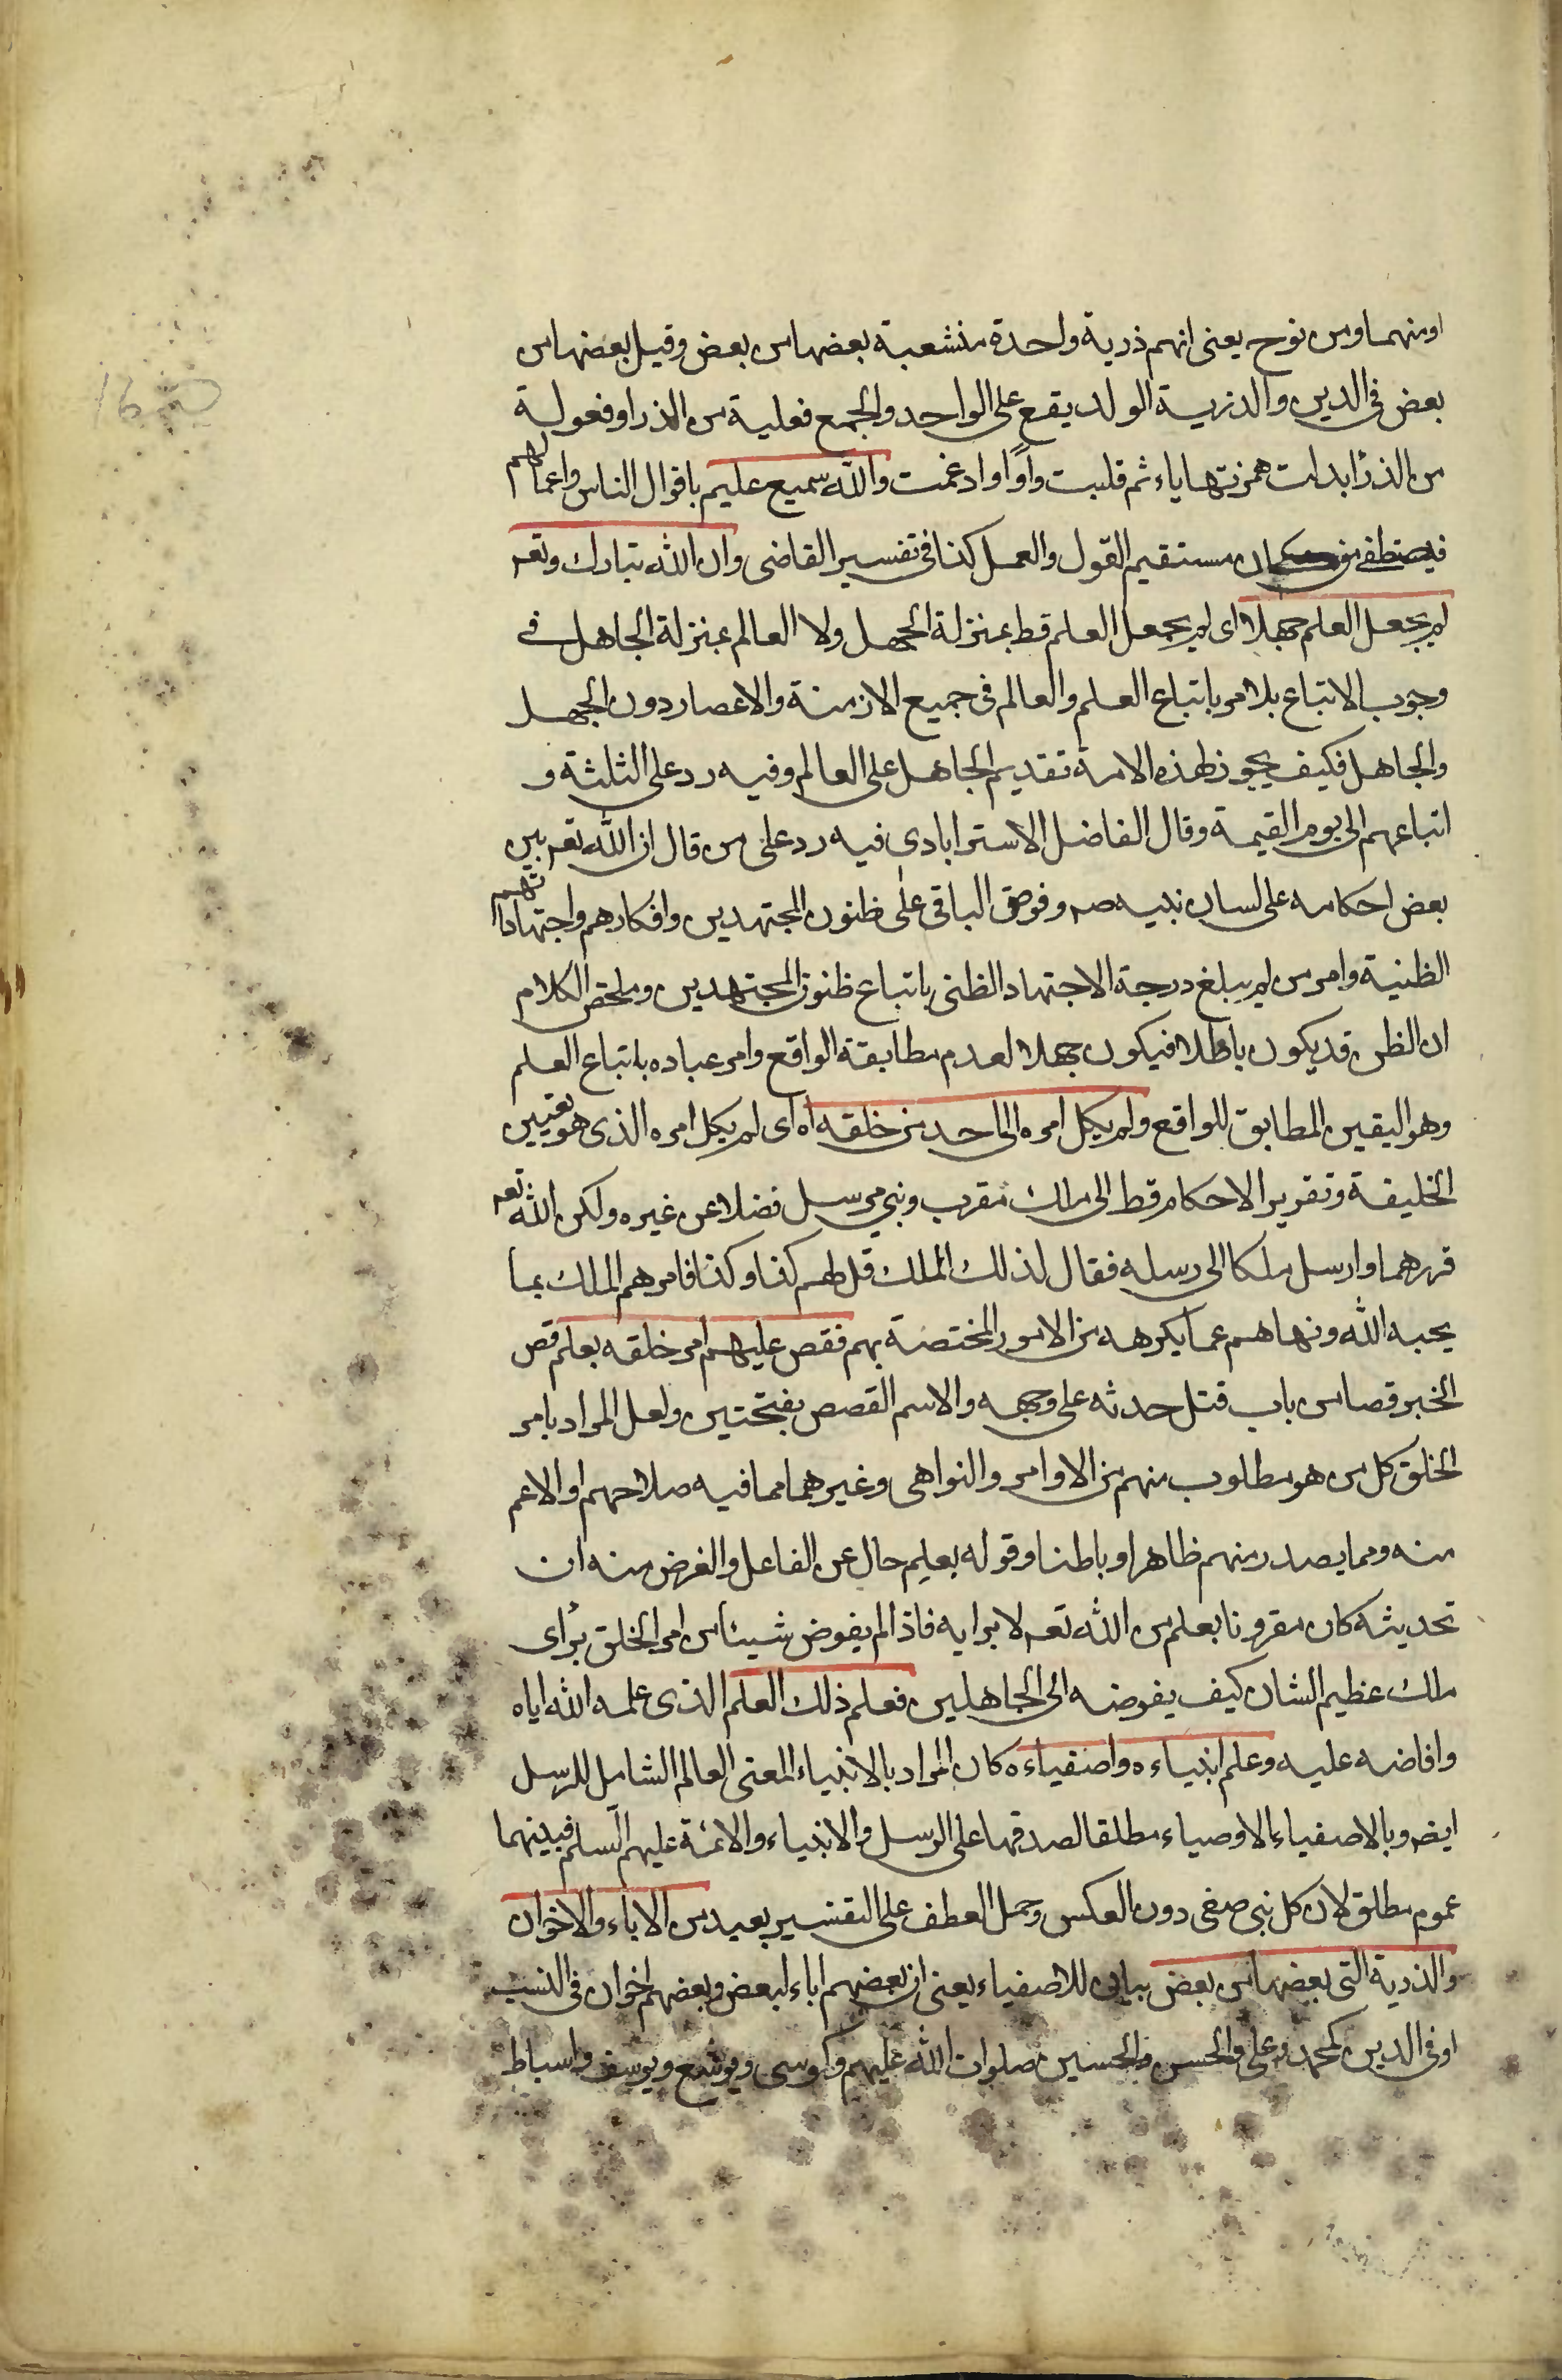 او منهما ومن نوح يعنى انهم ذرية واحدة منشعبة بعضها من بعض وقيل بعضها من
بعض فى الدين والذرية الولد يقع على الواحد والجمع فعلية من الذر او فعولة
من الذرأ ابدلت همزتها ياء ثم قلبت واوًا وادغمت والله سميع عليم باقوال الناس واعمالهم
فيصطفى من كان مستقيم القول والعمل كذا فى تفسير القاضى وان الله تبارك وتعه
لم يجعل العلم جهلا اى لم يجعل العلم قط بمنزلة الجهل ولا العالم بمنزلة الجاهل فى
وجوب الاتباع بل امر باتباع العلم والعالم فى جميع الازمنة والاعصار دون الجهل
والجاهل فكيف يجوز لهذه الامة تقديم الجاهل على العالم وفيه رد على الثلثة و
اتباعهم الى يوم القيمة وقال الفاضل الاسترابادى فيه رد على من قال ان الله تعه بين
بعض احكامه على لسان نبيه صه وفوض الباقى على ظنون المجتهدين وافكارهم واجتهاداتهم
الظنية وامر من لم يبلغ درجة الاجتهاد الظنى باتباع ظنون المجتهدين وملخص الكلام
ان الظن قد يكون باطلا فيكون جهلا لعدم مطابقة الواقع وامر عباده باتباع العلم
وهو اليقين المطابق للواقع ولم يكل امره الى احد من خلقه اه اى لم يكل امره الذى هو تعيين
الخليفة وتقرير الاحكام قط الى ملك مقرب ونبي مرسل فضلا عن غيره ولكن الله تعه
قررهما وارسل ملكا الى رسله فقال لذلك الملك قل لهم كذا وكذا فامرهم الملك بما
يحبه الله ونهاهم عما يكرهه من الامور المختصة بهم فقص عليهم امر خلقه بعلم قص
الخبر قصا من باب قتل حدثه على وجهه والاسم القصص بفتحتين ولعل المراد بامر
الخلق كل من هو مطلوب منهم من الاوامر والنواهى وغيرهما مما فيه صلاحهم او الاعم
منه ومما يصدر منهم ظاهرا وباطنا وقوله بعلم حال عن الفاعل والغرض منه ان
تحديثه كان مقرونا بعلم من الله تعه لا برايه فاذا لم يفوض شيئا من امر الخلق برأى
ملك عظيم الشان كيف يفوضه الى الجاهلين فعلم ذلك العلم الذى علمه الله اياه
وافاضه عليه وعلم انبياءه واصفياءه كان المراد بالانبياء المعنى العالم الشامل للرسل
ايضه وبالاصفياء الاوصياء مطلقا لصدقها على الرسل والانبياء والائمة عليهم السلم فبينهما
عموم مطلق لان كل نبى صفى دون العكس وحمل العطف على التفسير بعيد من الاباء والاخوان
والذرية التى بعضها من بعض بيان للاصفياء يعنى ان بعضهم اباء لبعض وبعضهم اخوان فى النسب
او فى الدين كمحمد وعلى والحسن والحسين صلوات الله عليهم وكموسى ويوشع ويوسف واسباط